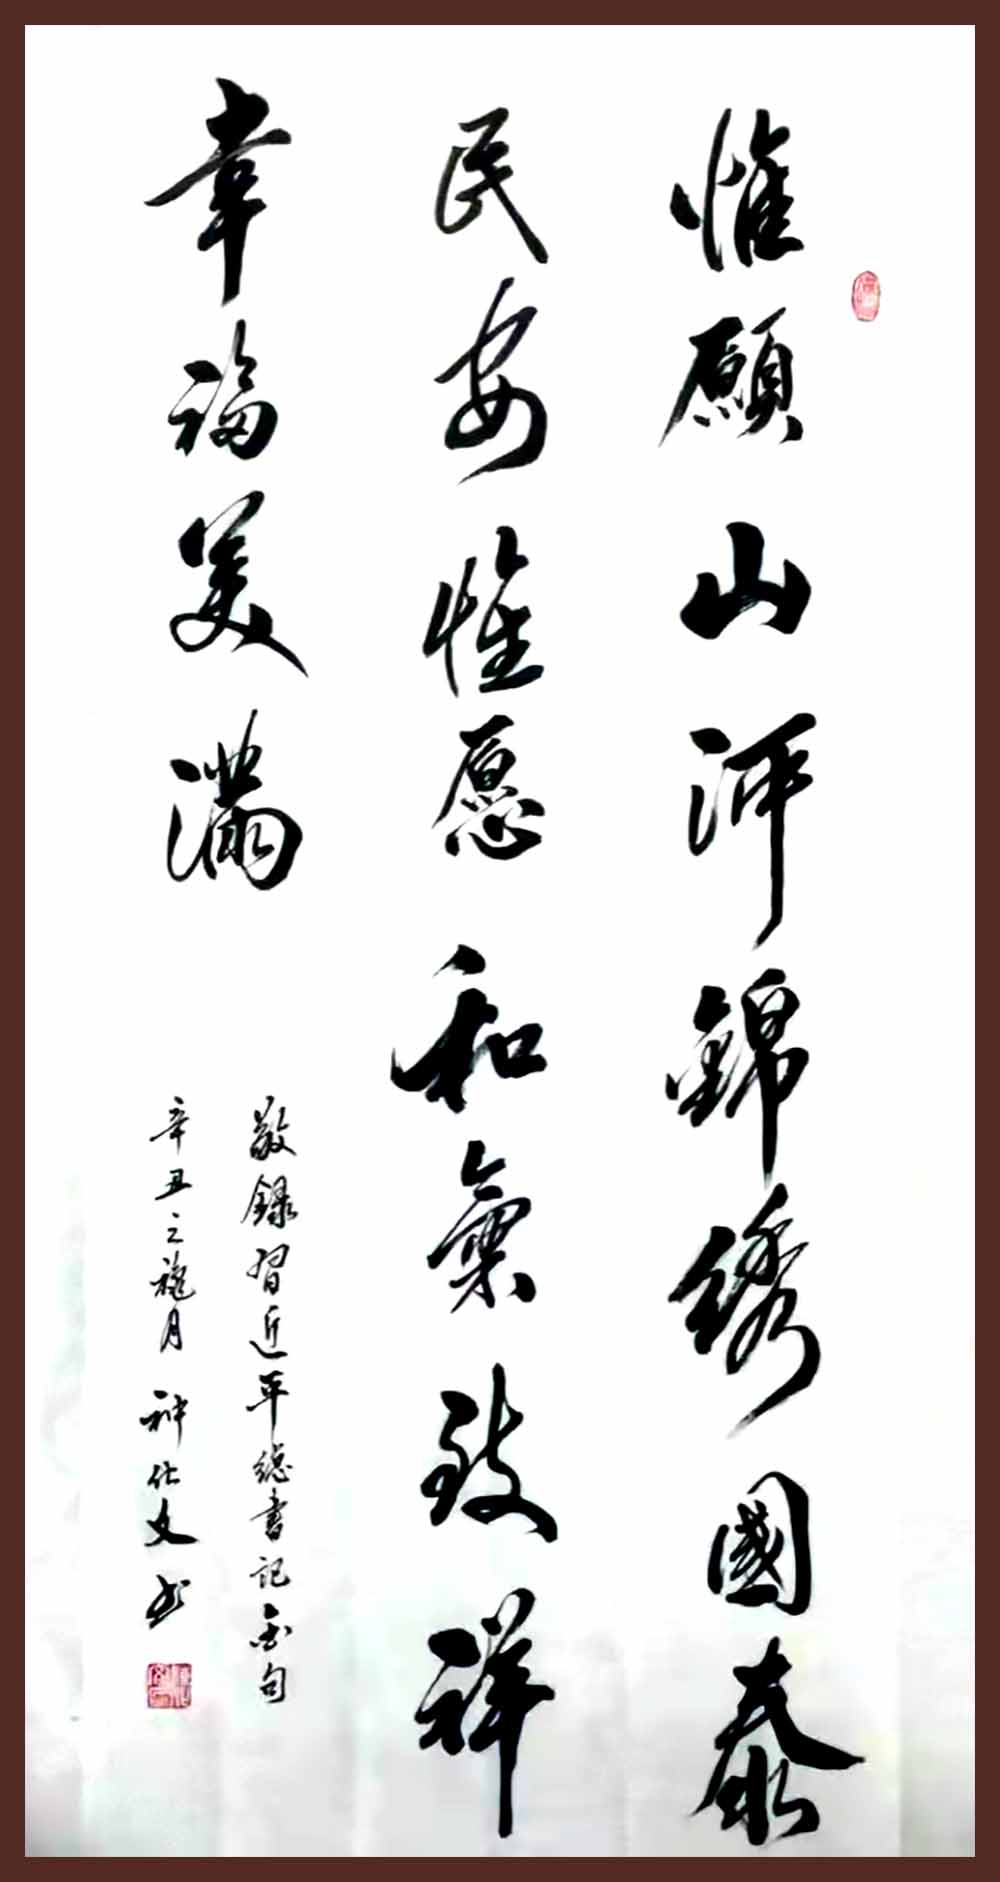 惟願山河錦綉國泰
民安惟愿和氣致祥
幸福美滿
敬錄習近平總書記金句
辛丑之穐月 神仕文书